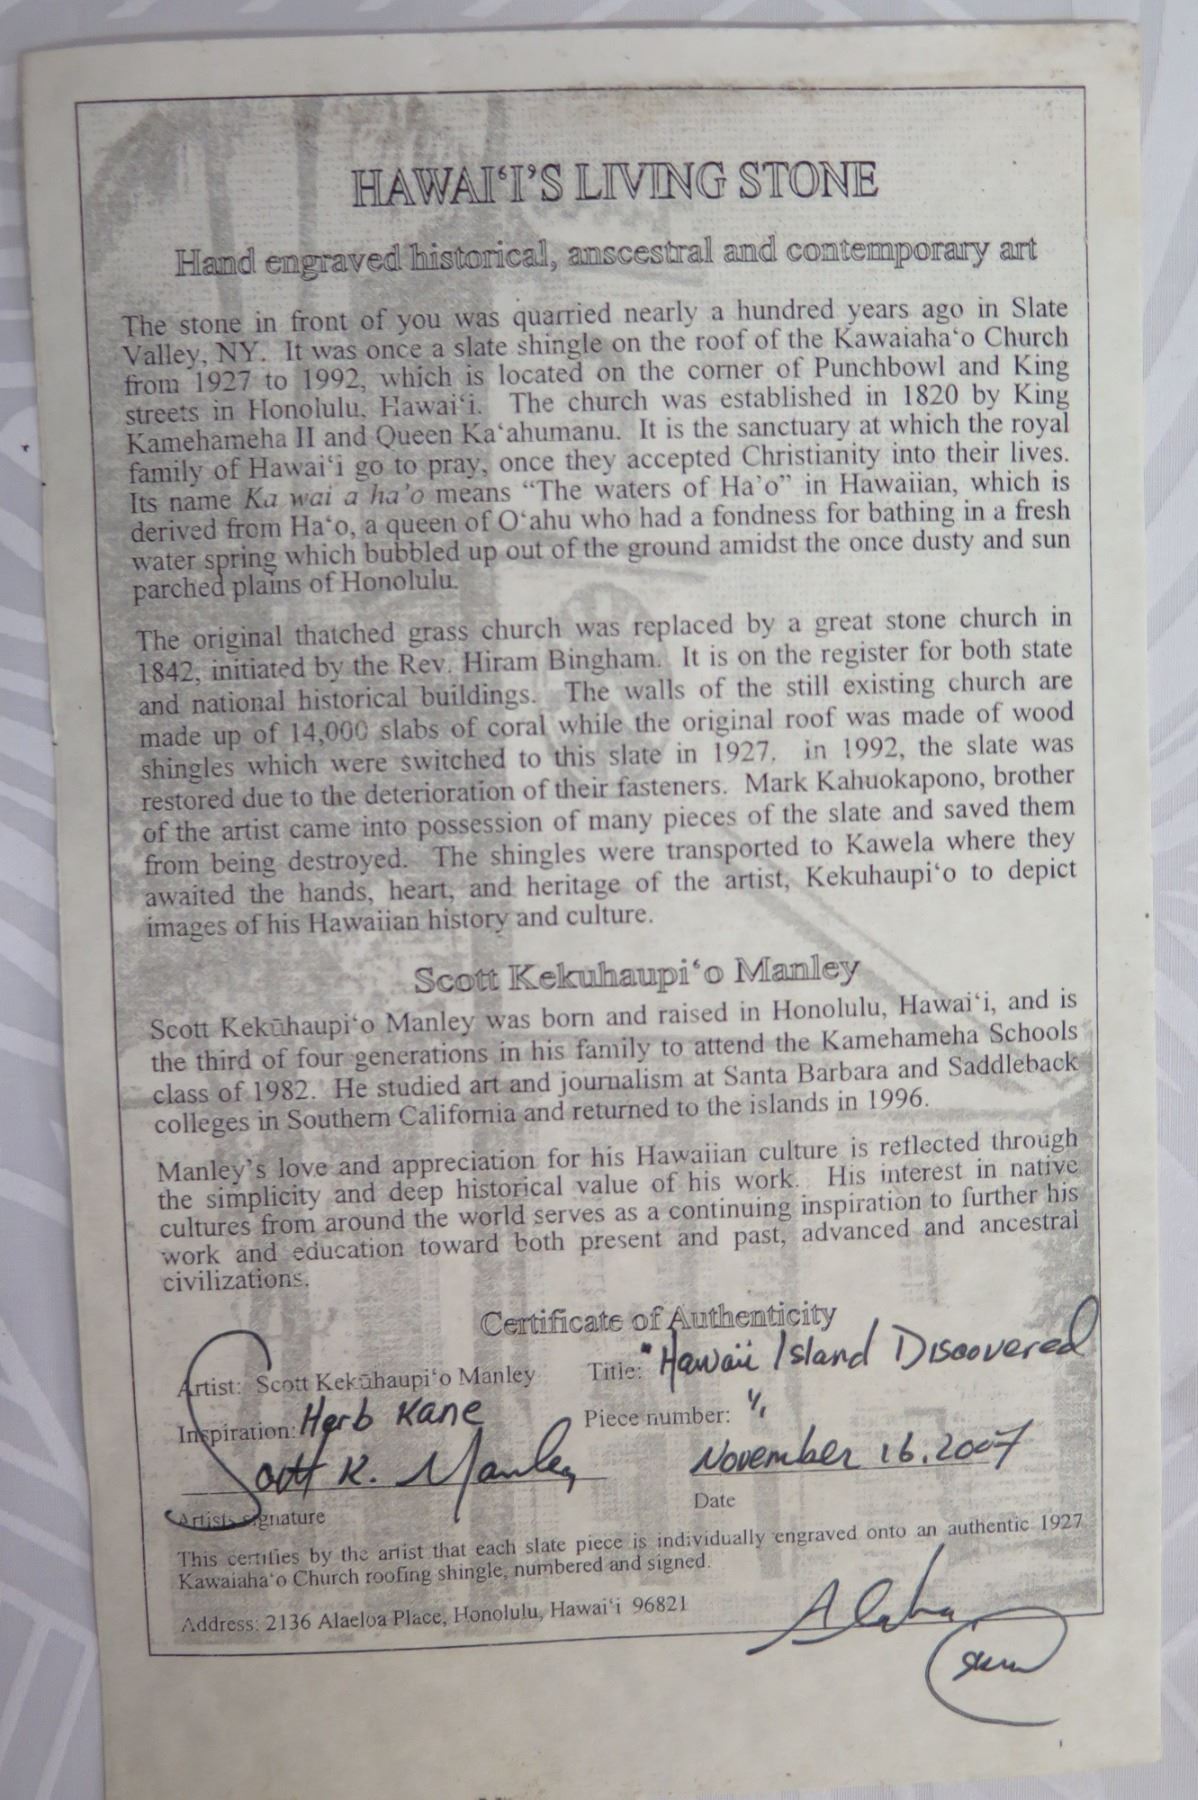 HAWAI‘I’S LIVING STONE
Hand engraved historical, anscestral and contemporary art
The stone in front of you was quarried nearly a hundred years ago in Slate
Valley, NY. It was once a slate shingle on the roof of the Kawaiaha‘o Church
from 1927 to 1992, which is located on the corner of Punchbowl and King
streets in Honolulu, Hawai‘i. The church was established in 1820 by King
Kamehameha II and Queen Ka‘ahumanu. It is the sanctuary at which the royal
family of Hawai‘i go to pray, once they accepted Christianity into their lives.
Its name Ka wai a ha’o means “The waters of Ha’o” in Hawaiian, which is
derived from Ha‘o, a queen of O‘ahu who had a fondness for bathing in a fresh
water spring which bubbled up out of the ground amidst the once dusty and sun
parched plains of Honolulu.
The original thatched grass church was replaced by a great stone church in
1842, initiated by the Rev. Hiram Bingham. It is on the register for both state
and national historical buildings. The walls of the still existing church are
made up of 14,000 slabs of coral while the original roof was made of wood
shingles which were switched to this slate in 1927. in 1992, the slate was
restored due to the deterioration of their fasteners. Mark Kahuokapono, brother
of the artist came into possession of many pieces of the slate and saved them
from being destroyed. The shingles were transported to Kawela where they
awaited the hands, heart, and heritage of the artist, Kekuhaupi‘o to depict
images of his Hawaiian history and culture.
Scott Kekuhaupi‘o Manley
Scott Kekūhaupi‘o Manley was born and raised in Honolulu, Hawai‘i, and is
the third of four generations in his family to attend the Kamehameha Schools
class of 1982. He studied art and journalism at Santa Barbara and Saddleback
colleges in Southern California and returned to the islands in 1996.
Manley’s love and appreciation for his Hawaiian culture is reflected through
the simplicity and deep historical value of his work. His interest in native
cultures from around the world serves as a continuing inspiration to further his
work and education toward both present and past, advanced and ancestral
civilizations.
Certificate of Authenticity
Artist: Scott Kekūhaupi‘o Manley Title: "Hawaii Island Discovered
Inspiration: Herb Kane Piece number: 1/1
Scott K. Manley November 16. 2007
Artists signature Date
This certifies by the artist that each slate piece is individually engraved onto an authentic 1927
Kawaiaha‘o Church roofing shingle, numbered and signed.
Address: 2136 Alaeloa Place, Honolulu, Hawai‘i 96821
Aloha